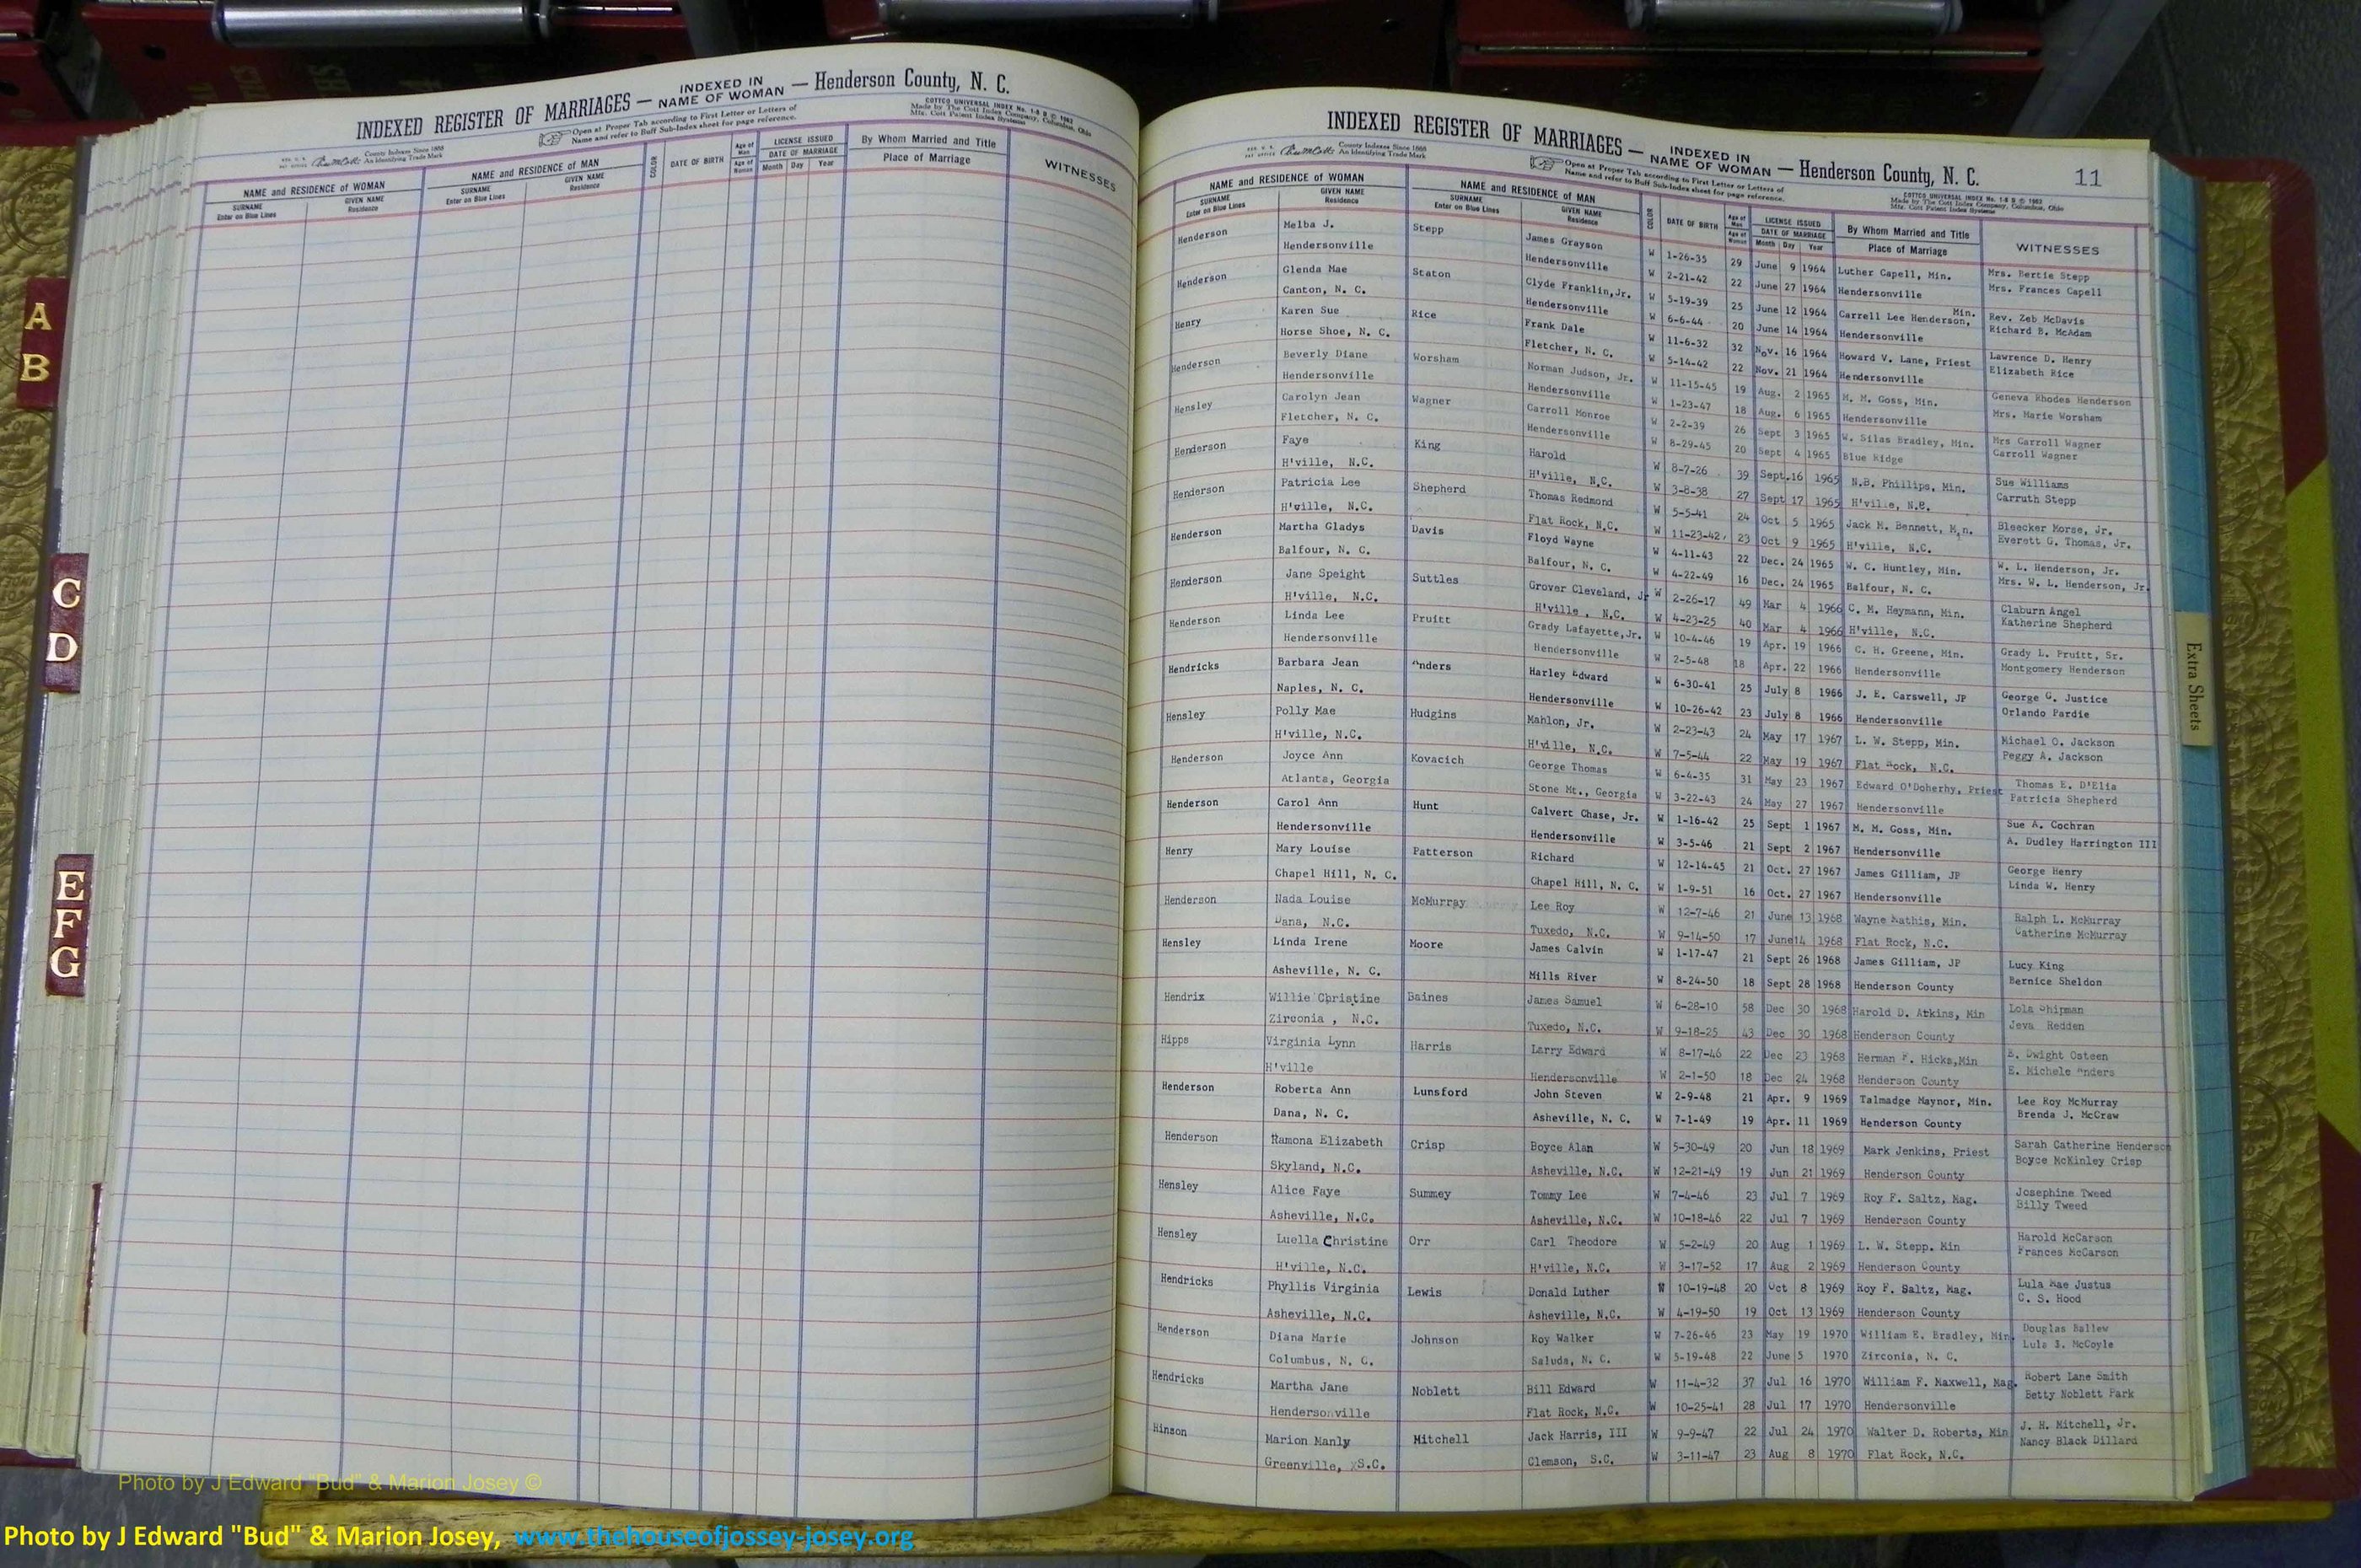 INDEXED REGISTER OF MARRIAGES — INDEXED IN NAME OF WOMAN — Henderson County, N. C.
Open at Proper Tab according to First Letter or Letters of
Name and refer to Buff Sub-Index sheet for page reference.
COTTCO UNIVERSAL INDEX No. 1-8 B © 1962
Made by The Cott Index Company, Columbus, Ohio
Mfr. Cott Patent Index Systems
County Indexes Since 1888
An Identifying Trade Mark
NAME and RESIDENCE of WOMAN
SURNAME
Enter on Blue Lines
GIVEN NAME
Residence
NAME and RESIDENCE of MAN
SURNAME
Enter on Blue Lines
GIVEN NAME
Residence
COLOR
DATE OF BIRTH
Age of Man
Age of Woman
LICENSE ISSUED
DATE OF MARRIAGE
Month Day Year
By Whom Married and Title
Place of Marriage
WITNESSES
A
B
C
D
E
F
G
INDEXED REGISTER OF MARRIAGES — INDEXED IN NAME OF WOMAN — Henderson County, N. C. 11
Open at Proper Tab according to First Letter or Letters of
Name and refer to Buff Sub-Index sheet for page reference.
COTTCO UNIVERSAL INDEX No. 1-8 B © 1962
Made by The Cott Index Company, Columbus, Ohio
Mfr. Cott Patent Index Systems
County Indexes Since 1888
An Identifying Trade Mark
NAME and RESIDENCE of WOMAN
SURNAME
Enter on Blue Lines
GIVEN NAME
Residence
NAME and RESIDENCE of MAN
SURNAME
Enter on Blue Lines
GIVEN NAME
Residence
COLOR
DATE OF BIRTH
Age of Man
Age of Woman
LICENSE ISSUED
DATE OF MARRIAGE
Month Day Year
By Whom Married and Title
Place of Marriage
WITNESSES
Henderson Melba J. Stepp James Grayson W 1-26-35 29 June 9 1964 Luther Capell, Min. Mrs. Bertie Stepp
Hendersonville Hendersonville W 2-21-42 22 June 27 1964 Hendersonville Mrs. Frances Capell
Henderson Glenda Mae Staton Clyde Franklin,Jr. W 5-19-39 25 June 12 1964 Carrell Lee Henderson, Min. Rev. Zeb McDavis
Canton, N. C. Hendersonville W 6-6-44 20 June 14 1964 Hendersonville Richard B. McAdam
Henry Karen Sue Rice Frank Dale W 11-6-32 32 Nov. 16 1964 Howard V. Lane, Priest Lawrence D. Henry
Horse Shoe, N. C. Fletcher, N. C. W 5-14-42 22 Nov. 21 1964 Hendersonville Elizabeth Rice
Henderson Beverly Diane Worsham Norman Judson, Jr. W 11-15-45 19 Aug. 2 1965 M. M. Goss, Min. Geneva Rhodes Henderson
Hendersonville Hendersonville W 1-23-47 18 Aug. 6 1965 Hendersonville Mrs. Marie Worsham
Hensley Carolyn Jean Wagner Carroll Monroe W 2-2-39 26 Sept 3 1965 W. Silas Bradley, Min. Mrs Carroll Wagner
Fletcher, N. C. Hendersonville W 8-29-45 20 Sept 4 1965 Blue Ridge Carroll Wagner
Henderson Faye King Harold W 8-7-26 39 Sept.16 1965 N.B. Phillips, Min. Sue Williams
H'ville, N.C. H'ville, N.C. W 3-8-38 27 Sept 17 1965 H'ville, N.B. Carruth Stepp
Henderson Patricia Lee Shepherd Thomas Redmond W 5-5-41 24 Oct 5 1965 Jack M. Bennett, Min. Bleecker Morse, Jr.
H'ville, N.C. Flat Rock, N.C. W 11-23-42, 23 Oct 9 1965 H'ville, N.C. Everett G. Thomas, Jr.
Henderson Martha Gladys Davis Floyd Wayne W 4-11-43 22 Dec. 24 1965 W. C. Huntley, Min. W. L. Henderson, Jr.
Balfour, N. C. Balfour, N. C. W 4-22-49 16 Dec. 24 1965 Balfour, N. C. Mrs. W. L. Henderson, Jr.
Henderson Jane Speight Suttles Grover Cleveland, Jr W 2-26-17 49 Mar 4 1966 C. M. Heymann, Min. Claburn Angel
H'ville, N.C. H'ville , N.C. W 4-23-25 40 Mar 4 1966 H'ville, N.C. Katherine Shepherd
Henderson Linda Lee Pruitt Grady Lafayette,Jr. W 10-4-46 19 Apr. 19 1966 C. H. Greene, Min. Grady L. Pruitt, Sr.
Hendersonville Hendersonville W 2-5-48 18 Apr. 22 1966 Hendersonville Montgomery Henderson
Hendricks Barbara Jean Anders Harley Edward W 6-30-41 25 July 8 1966 J. E. Carswell, JP George G. Justice
Naples, N. C. Hendersonville W 10-26-42 23 July 8 1966 Hendersonville Orlando Pardie
Hensley Polly Mae Hudgins Mahlon, Jr. W 2-23-43 24 May 17 1967 L. W. Stepp, Min. Michael O. Jackson
H'ville, N.C. H'ville, N.C. W 7-5-44 22 May 19 1967 Flat Rock, N.C. Peggy A. Jackson
Henderson Joyce Ann Kovacich George Thomas W 6-4-35 31 May 23 1967 Edward O'Doherhy, Priest Thomas E. D'Elia
Atlanta, Georgia Stone Mt., Georgia W 3-22-43 24 May 27 1967 Hendersonville Patricia Shepherd
Henderson Carol Ann Hunt Calvert Chase, Jr. W 1-16-42 25 Sept 1 1967 M. M. Goss, Min. Sue A. Cochran
Hendersonville Hendersonville W 3-5-46 21 Sept 2 1967 Hendersonville A. Dudley Harrington III
Henry Mary Louise Patterson Richard W 12-14-45 21 Oct. 27 1967 James Gilliam, JP George Henry
Chapel Hill, N. C. Chapel Hill, N. C. W 1-9-51 16 Oct. 27 1967 Hendersonville Linda W. Henry
Henderson Nada Louise McMurray Lee Roy W 12-7-46 21 June 13 1968 Wayne Mathis, Min. Ralph L. McMurray
Dana, N.C. Tuxedo, N.C. W 9-14-50 17 June14 1968 Flat Rock, N.C. Catherine McMurray
Hensley Linda Irene Moore James Calvin W 1-17-47 21 Sept 26 1968 James Gilliam, JP Lucy King
Asheville, N. C. Mills River W 8-24-50 18 Sept 28 1968 Henderson County Bernice Sheldon
Hendrix Willie Christine Baines James Samuel W 6-28-10 58 Dec 30 1968 Harold D. Atkins, Min Lola Shipman
Zirconia , N.C. Tuxedo, N.C. W 9-18-25 43 Dec 30 1968 Henderson County Jeva Redden
Hipps Virginia Lynn Harris Larry Edward W 8-17-46 22 Dec 23 1968 Herman F. Hicks,Min B. Dwight Osteen
H'ville Hendersonville W 2-1-50 18 Dec 24 1968 Henderson County E. Michele Anders
Henderson Roberta Ann Lunsford John Steven W 2-9-48 21 Apr. 9 1969 Talmadge Maynor, Min. Lee Roy McMurray
Dana, N. C. Asheville, N. C. W 7-1-49 19 Apr. 11 1969 Henderson County Brenda J. McCraw
Henderson Ramona Elizabeth Crisp Boyce Alan W 5-30-49 20 Jun 18 1969 Mark Jenkins, Priest Sarah Catherine Henderson
Skyland, N.C. Asheville, N.C. W 12-21-49 19 Jun 21 1969 Henderson County Boyce McKinley Crisp
Hensley Alice Faye Summey Tommy Lee W 7-4-46 23 Jul 7 1969 Roy F. Saltz, Mag. Josephine Tweed
Asheville, N.C. Asheville, N.C. W 10-18-46 22 Jul 7 1969 Henderson County Billy Tweed
Hensley Luella Christine Orr Carl Theodore W 5-2-49 20 Aug 1 1969 L. W. Stepp. Min Harold McCarson
H'ville, N.C. H'ville, N.C. W 3-17-52 17 Aug 2 1969 Henderson County Frances McCarson
Hendricks Phyllis Virginia Lewis Donald Luther W 10-19-48 20 Oct 8 1969 Roy F. Saltz, Mag. Lula Mae Justus
Asheville, N.C. Asheville, N.C. W 4-19-50 19 Oct 13 1969 Henderson County C. S. Hood
Henderson Diana Marie Johnson Roy Walker W 7-26-46 23 May 19 1970 William E. Bradley, Min. Douglas Ballew
Columbus, N. C. Saluda, N. C. W 5-19-48 22 June 5 1970 Zirconia, N. C. Lula McCoyle
Hendricks Martha Jane Noblett Bill Edward W 11-4-32 37 Jul 16 1970 William F. Maxwell, Mag. Robert Lane Smith
Hendersonville Flat Rock, N.C. W 10-25-41 28 Jul 17 1970 Hendersonville Betty Noblett Park
Hinson Marion Manly Mitchell Jack Harris, III W 9-9-47 22 Jul 24 1970 Walter D. Roberts, Min J. H. Mitchell, Jr.
Greenville, S.C. Clemson, S.C. W 3-11-47 23 Aug 8 1970 Flat Rock, N.C. Nancy Black Dillard
Extra Sheets
Photo by J Edward "Bud" & Marion Josey ©
Photo by J Edward "Bud" & Marion Josey, www.thehouseofjossey-josey.org